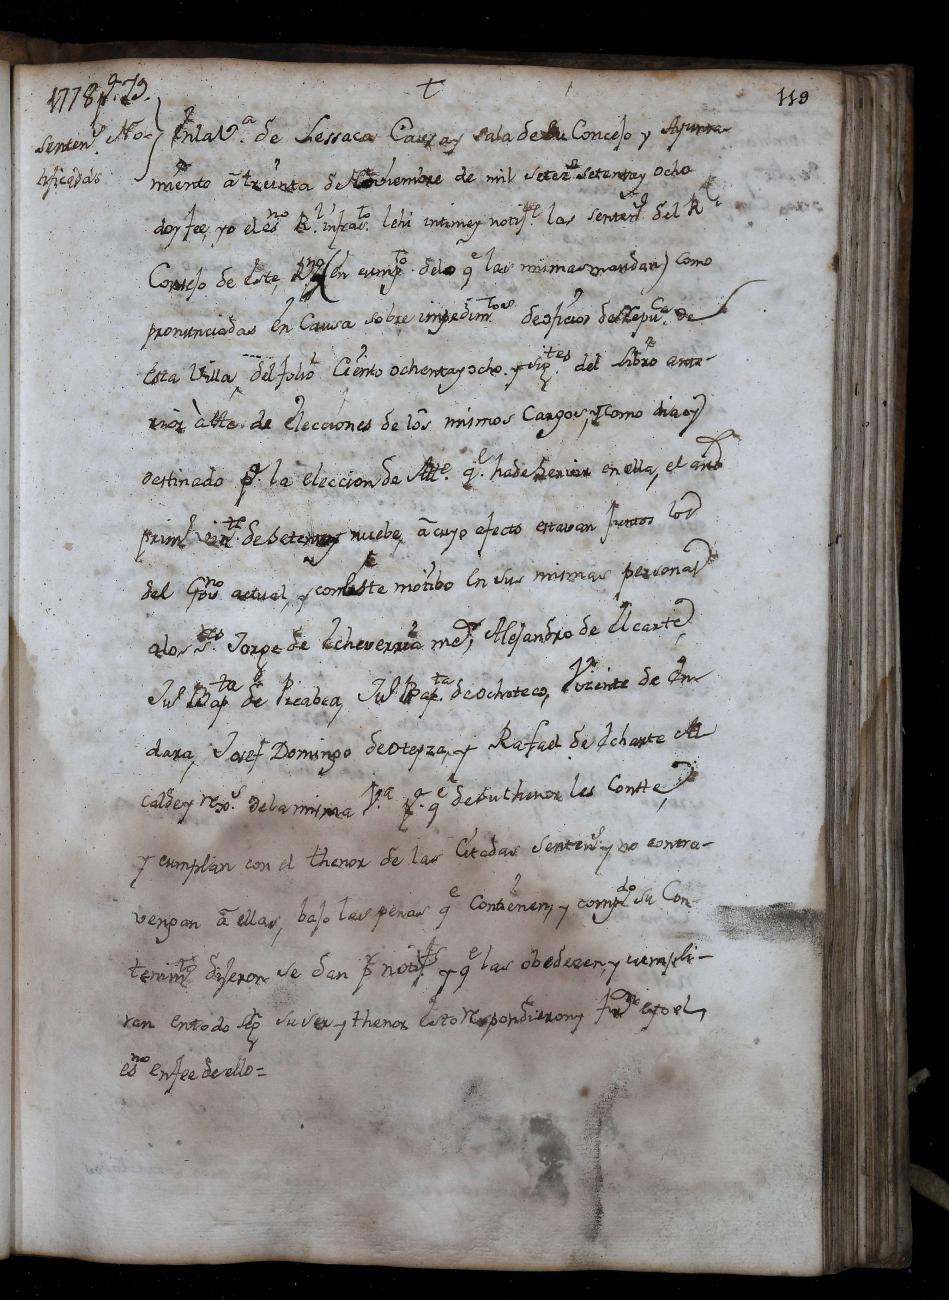 1778 pª 79.
✝
119
Senten.s No-
tificadas
En la V.ª de Lessaca Casa y Sala de su Concejo y Ayunta-
miento à treinta de Noviembre de mil setez.s setenta y ocho
doy fee, yo el es.no R.l infrasto. lehi intime y notif.e las senten.s del R.l
Consejo de este R.no (en cump.to delo q.e las mismas mandan) como
pronunciadas en Causa sobre impedim.tos de oficios de Repu.ca de
esta Villa, del folio Ciento ochenta y ocho y sig.tes del Libro ante-
rior de elecciones de los mismos Cargos, y como dia
destinado p.ª la eleccion de Alc.e q.e ha de servir en ella, el año
prim.o de setenta y nuebe, à cuyo efecto estavan juntos los
del Gov.no actual, y con este motibo en sus mismas personas
alos S.res Jorge de Echeverria Alejandro de Elcarte,
Ju.n Bap.ta de Picabea, Ju.n Bap.ta de Ochoteco, Vizente de En
dara, Josef Domingo de Oteyza, y Rafael de Ucharte Al
calde y rex.s de la misma V.ª p.ª q.e de su thenor les Conste,
y cumplan con el thenor de las Citadas Senten.s y no contra-
vengan à ellas, bajo las penas q.e Contienen, y compd.do su Con-
tenim.to dijeron se dan p.r notif.s y q.e las obedezen, y cumpli-
ran en todo seg.n su ser y thenor Esto respondieron y firm.e yo el
es.no en fee de ello =